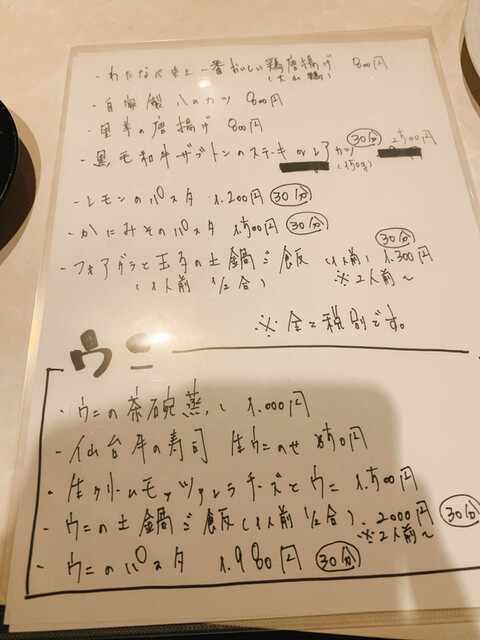 ・わたなべ史上一番おいしい鶏唐揚げ 800円
(大山鶏)
・自家製ハムカツ 800円
・里芋の唐揚げ 800円
・黒毛和牛ザブトンのステーキ or レア カツ 30分
(150g)
・レモンのパスタ 1.200円 30分
・かにみそのパスタ 1.500円 30分
・フォアグラと玉子の土鍋ご飯 (1人前) 1.300円 30分
(1人前 1/2合) ※2人前〜
※全て税別です。
ウニ
・ウニの茶碗蒸し 1.000円
・仙台牛の寿司 生ウニのせ
・生クリームモッツァレラチーズとウニ 1.500円
・ウニの土鍋ご飯(1人前 1/2合). 2000円 30分
※2人前〜
・ウニのパスタ 1.980円 30分